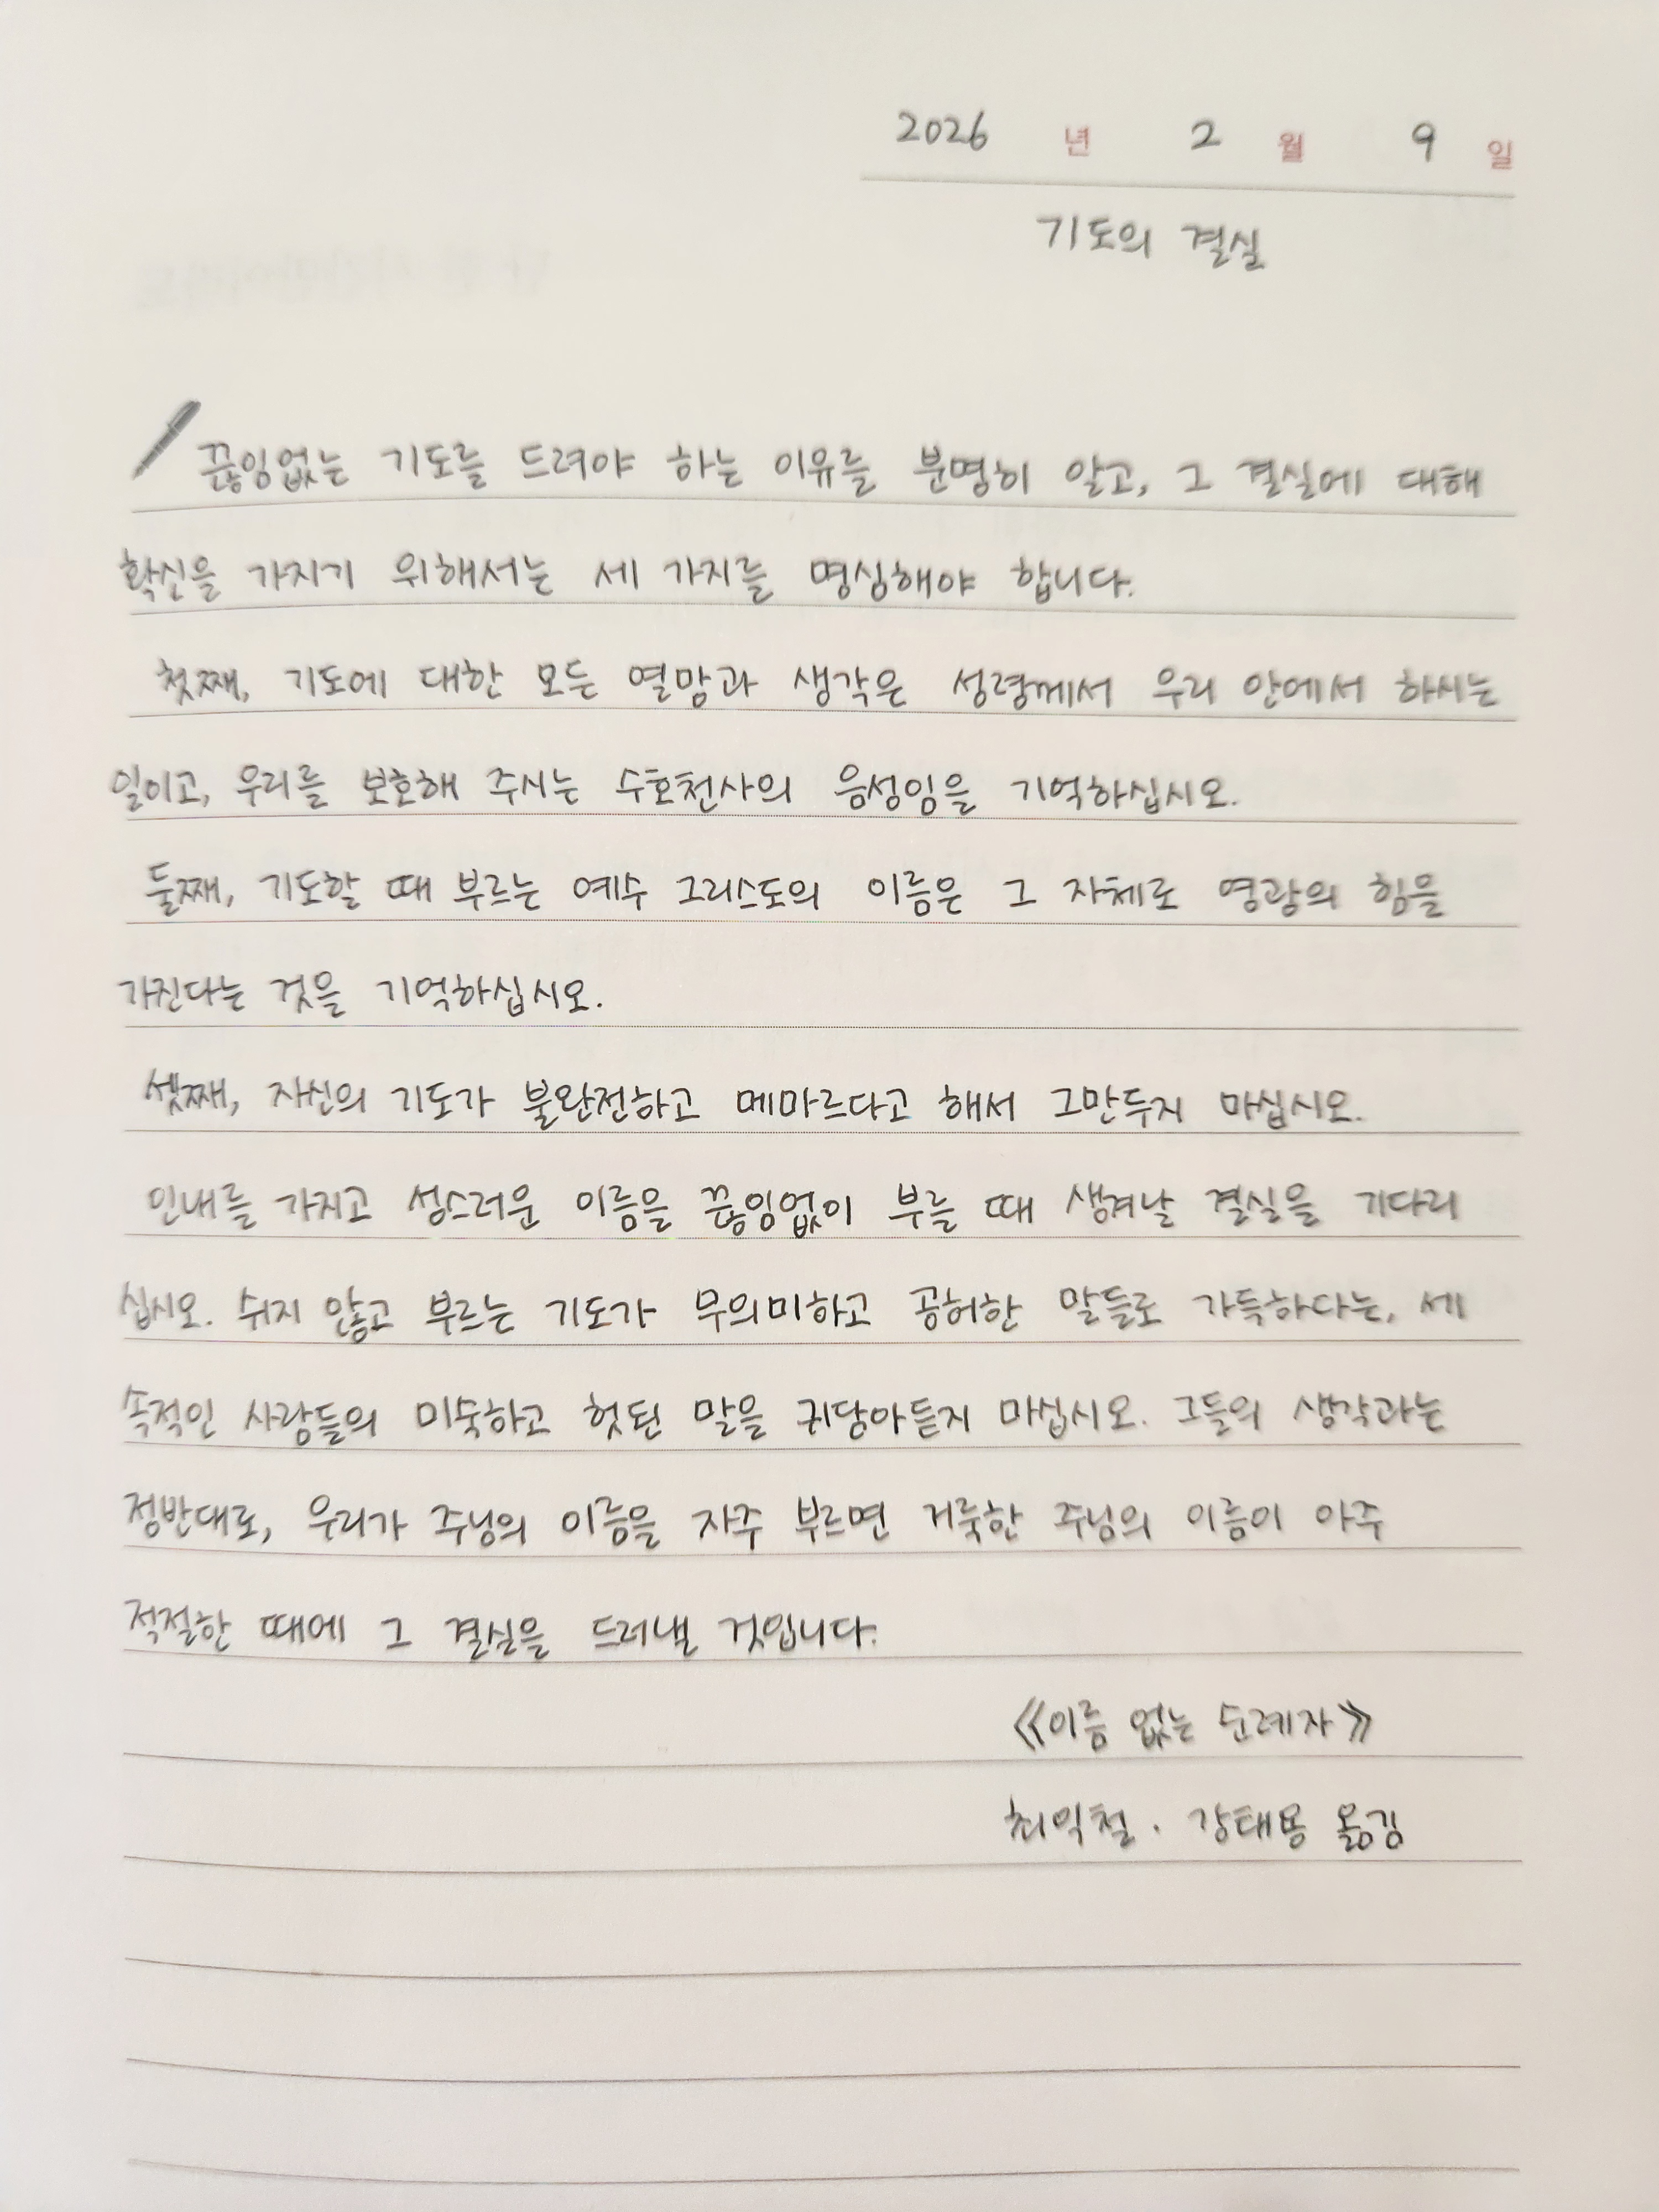 2026 년 2 월 9 일
기도의 결실
끊임없는 기도를 드려야 하는 이유를 분명히 알고, 그 결실에 대해
확신을 가지기 위해서는 세 가지를 명심해야 합니다.
첫째, 기도에 대한 모든 열망과 생각은 성령께서 우리 안에서 하시는
일이고, 우리를 보호해 주시는 수호천사의 음성임을 기억하십시오.
둘째, 기도할 때 부르는 예수 그리스도의 이름은 그 자체로 영광의 힘을
가진다는 것을 기억하십시오.
셋째, 자신의 기도가 불완전하고 메마르다고 해서 그만두지 마십시오.
인내를 가지고 성스러운 이름을 끊임없이 부를 때 생겨날 결실을 기다리
십시오. 쉬지 않고 부르는 기도가 무의미하고 공허한 말들로 가득하다는, 세
속적인 사람들의 미숙하고 헛된 말을 귀담아듣지 마십시오. 그들의 생각과는
정반대로, 우리가 주님의 이름을 자주 부르면 거룩한 주님의 이름이 아주
적절한 때에 그 결실을 드러낼 것입니다.
《이름 없는 순례자》
최익철 · 강태용 옮김